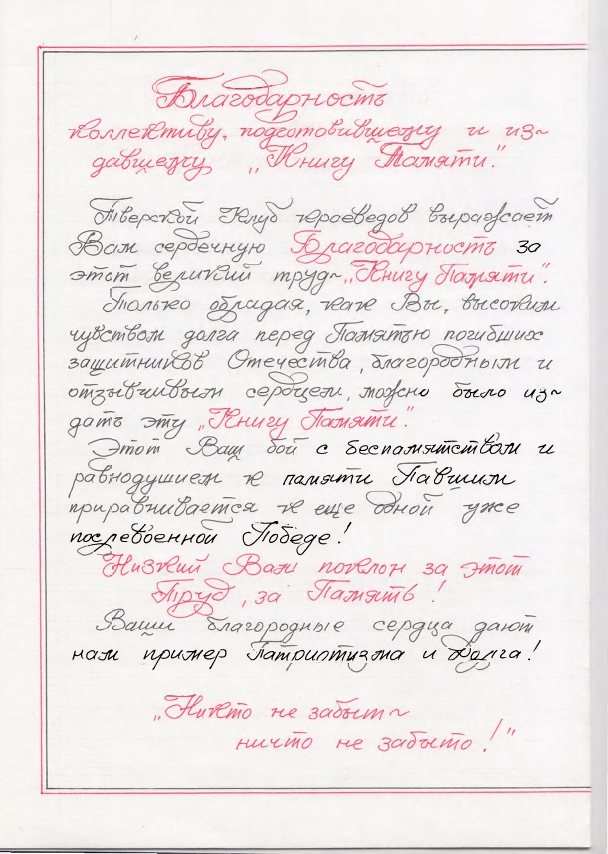 Благодарность
коллективу, подготовившему и из~
давшему „Книгу Памяти".
Тверской Клуб краеведов выражает
Вам сердечную Благодарность за
этот великий труд~„Книгу Памяти".
Только обладая, как Вы, высоким
чувством долга перед Памятью погибших
защитников Отечества, благородным и
отзывчивым сердцем, можно было из~
дать эту „Книгу Памяти".
Этот Ваш бой с беспамятством и
равнодушием к памяти Павшим
приравнивается к еще одной уже
послевоенной Победе!
Низкий Вам поклон за этот
Труд, за Память!
Ваши благородные сердца дают
нам пример Патриотизма и Долга!
„Никто не забыт~
ничто не забыто!"